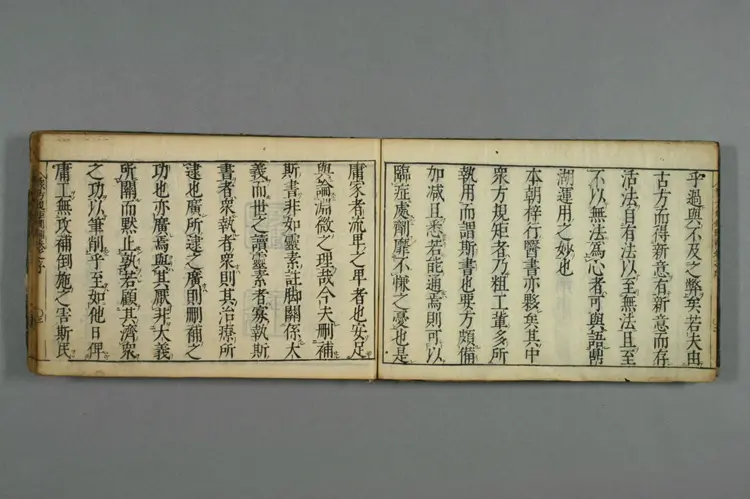 乎過與不及之弊矣若夫由
古方而得新意有新意而存
活法自有法以至無法且至
不以無法為心者可與語
湖運用之妙也
本朝梓行醫書亦夥矣其中
衆方規矩者乃粗工輩多所
執用而謂斯書也要方頗備
加减且悉若能通焉則可以
臨症處劑靡不慊之憂也是
庸家者流卑之卑者也安足
與論淵微之理哉今夫刪補
斯書非如靈素註脚關係大
義而世之讀靈素者寡執斯
書者衆執者衆則其治療所
逮也廣所逮之廣則刪補之
功也亦廣焉與其厭非大義
所關而黙止孰若顧其濟衆
之功以筆削乎至如他日俾
庸工無攻補倒施之害斯民